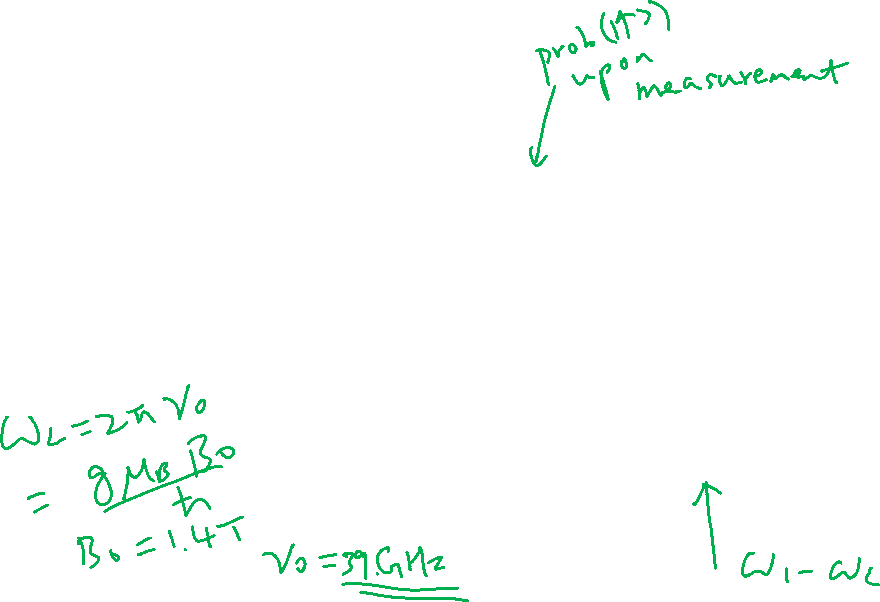 prob(|↑>)
upon
measurement
ω_L = 2π ν₀
= g μ_B B₀ / ħ
B₀ = 1.4 T
ν₀ = 39.GHz
ω₁ - ω_L